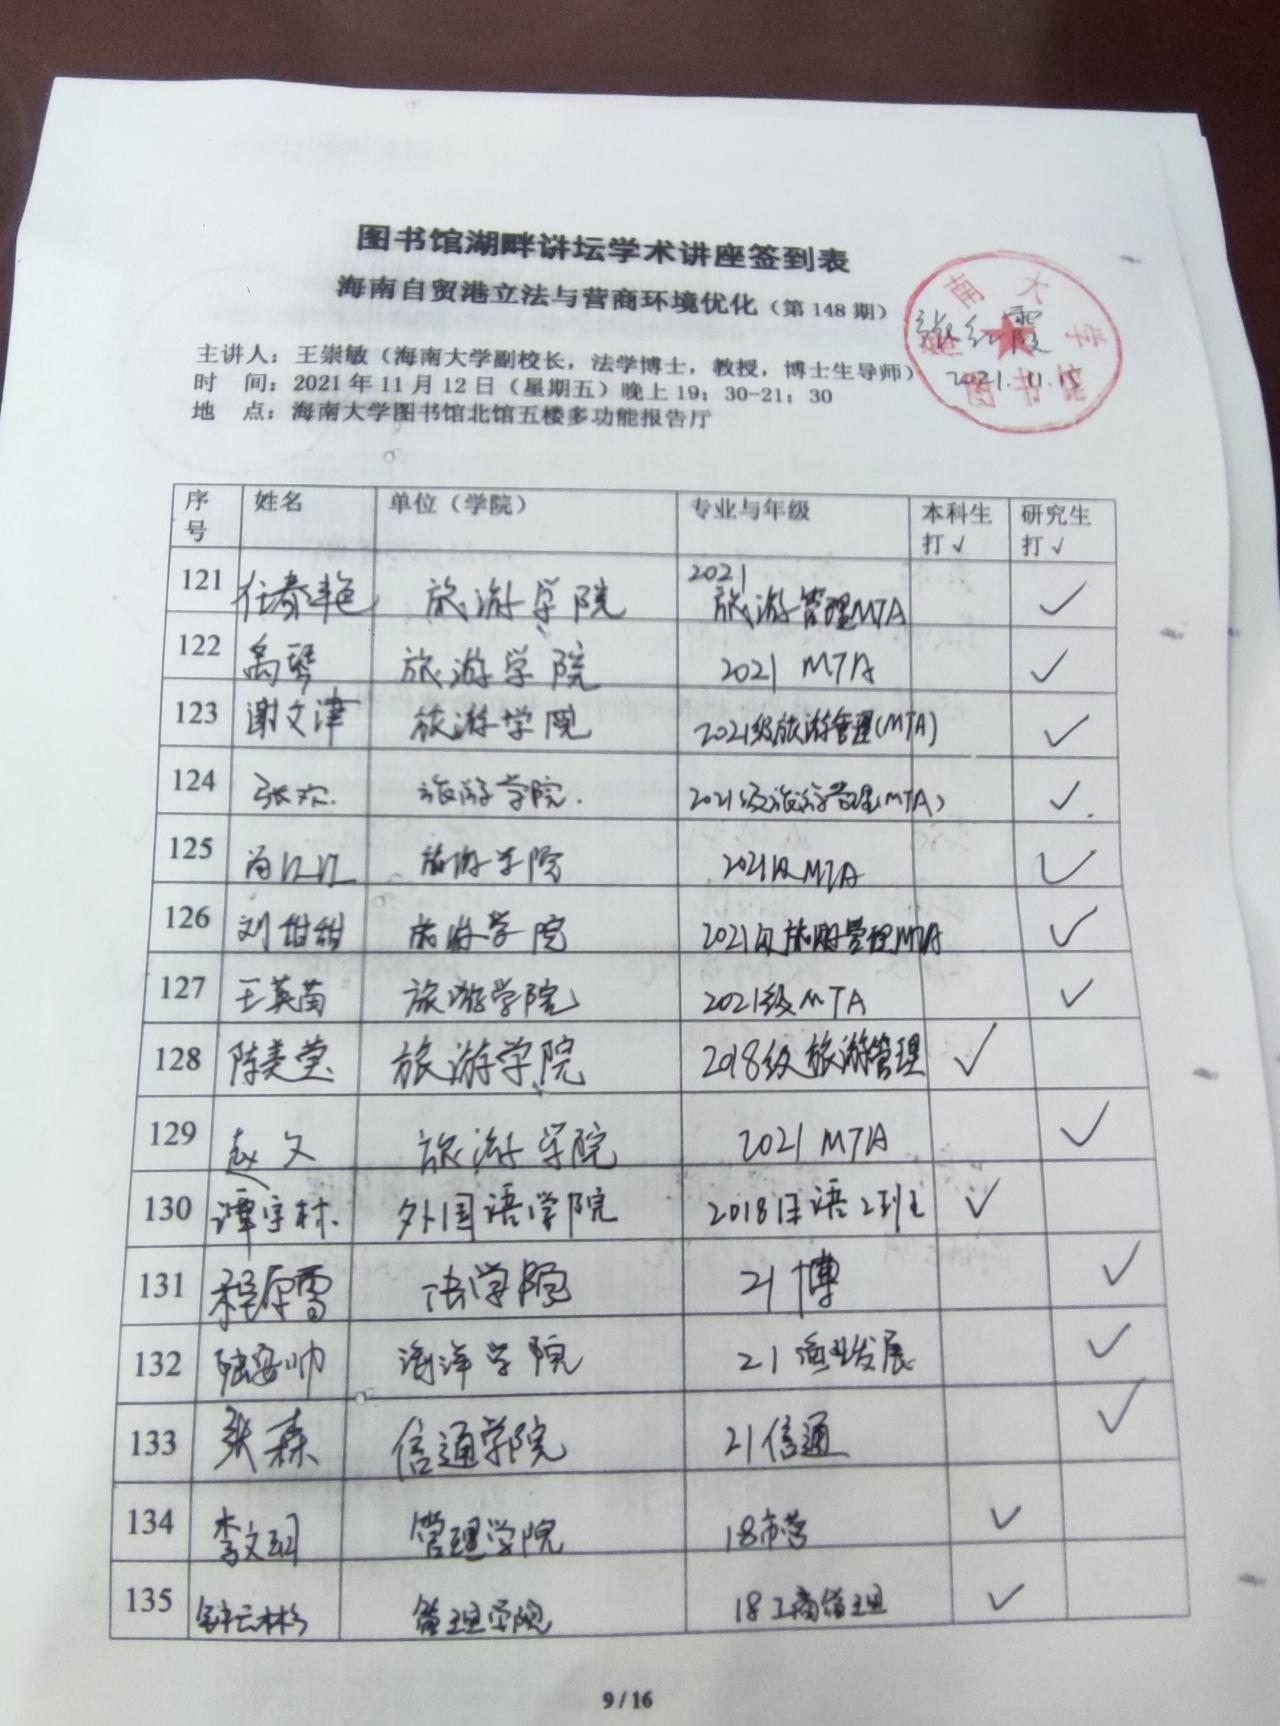 图书馆湖畔讲坛学术讲座签到表
海南自贸港立法与营商环境优化（第 148 期）
主讲人：王崇敏（海南大学副校长，法学博士，教授，博士生导师）
时 间：2021 年 11 月 12 日（星期五）晚上 19：30-21：30
地 点：海南大学图书馆北馆五楼多功能报告厅
海南大学图书馆
张红霞
2021.11.15
序号 姓名 单位（学院） 专业与年级 本科生打√ 研究生打√
121 任春艳 旅游学院 2021旅游管理MTA √
122 禹琴 旅游学院 2021 MTA √
123 谢文津 旅游学院 2021级旅游管理(MTA) √
124 张欢. 旅游学院. 2021级旅游管理(MTA) √
125 旅游学院 2021级MTA √
126 刘甜甜 旅游学院 2021级旅游管理MTA √
127 王英苗 旅游学院 2021级MTA √
128 陈美莹 旅游学院 2018级旅游管理 √
129 赵文 旅游学院 2021 MTA √
130 谭宇林. 外国语学院 2018日语2班 √
131 程厚雪 法学院 21博 √
132 陆安帅 海洋学院 21渔业发展 √
133 张森 信通学院 21信通 √
134 李文玥 管理学院 18市营 √
135 钟云彬 管理学院 18工商管理 √
9 / 16